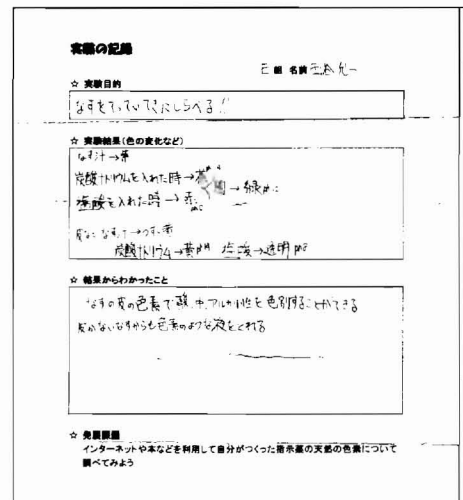 実験の記録
組 名前
☆ 実験目的
なすをてっていてきにしらべる!!
☆ 実験結果(色の変化など)
なす汁→紫
炭酸ナトリウムを入れた時→
塩酸を入れた時→
→緑
皮なしなす汁→うすい紫
炭酸ナトリウム→黄 塩酸→透明
☆ 結果からわかったこと
なすの皮の色素で酸、中、アルカリ性を色別することができる
皮がないなすからも色素のような液をとれる
☆ 発展課題
インターネットや本などを利用して自分がつくった指示薬の天然の色素について
調べてみよう